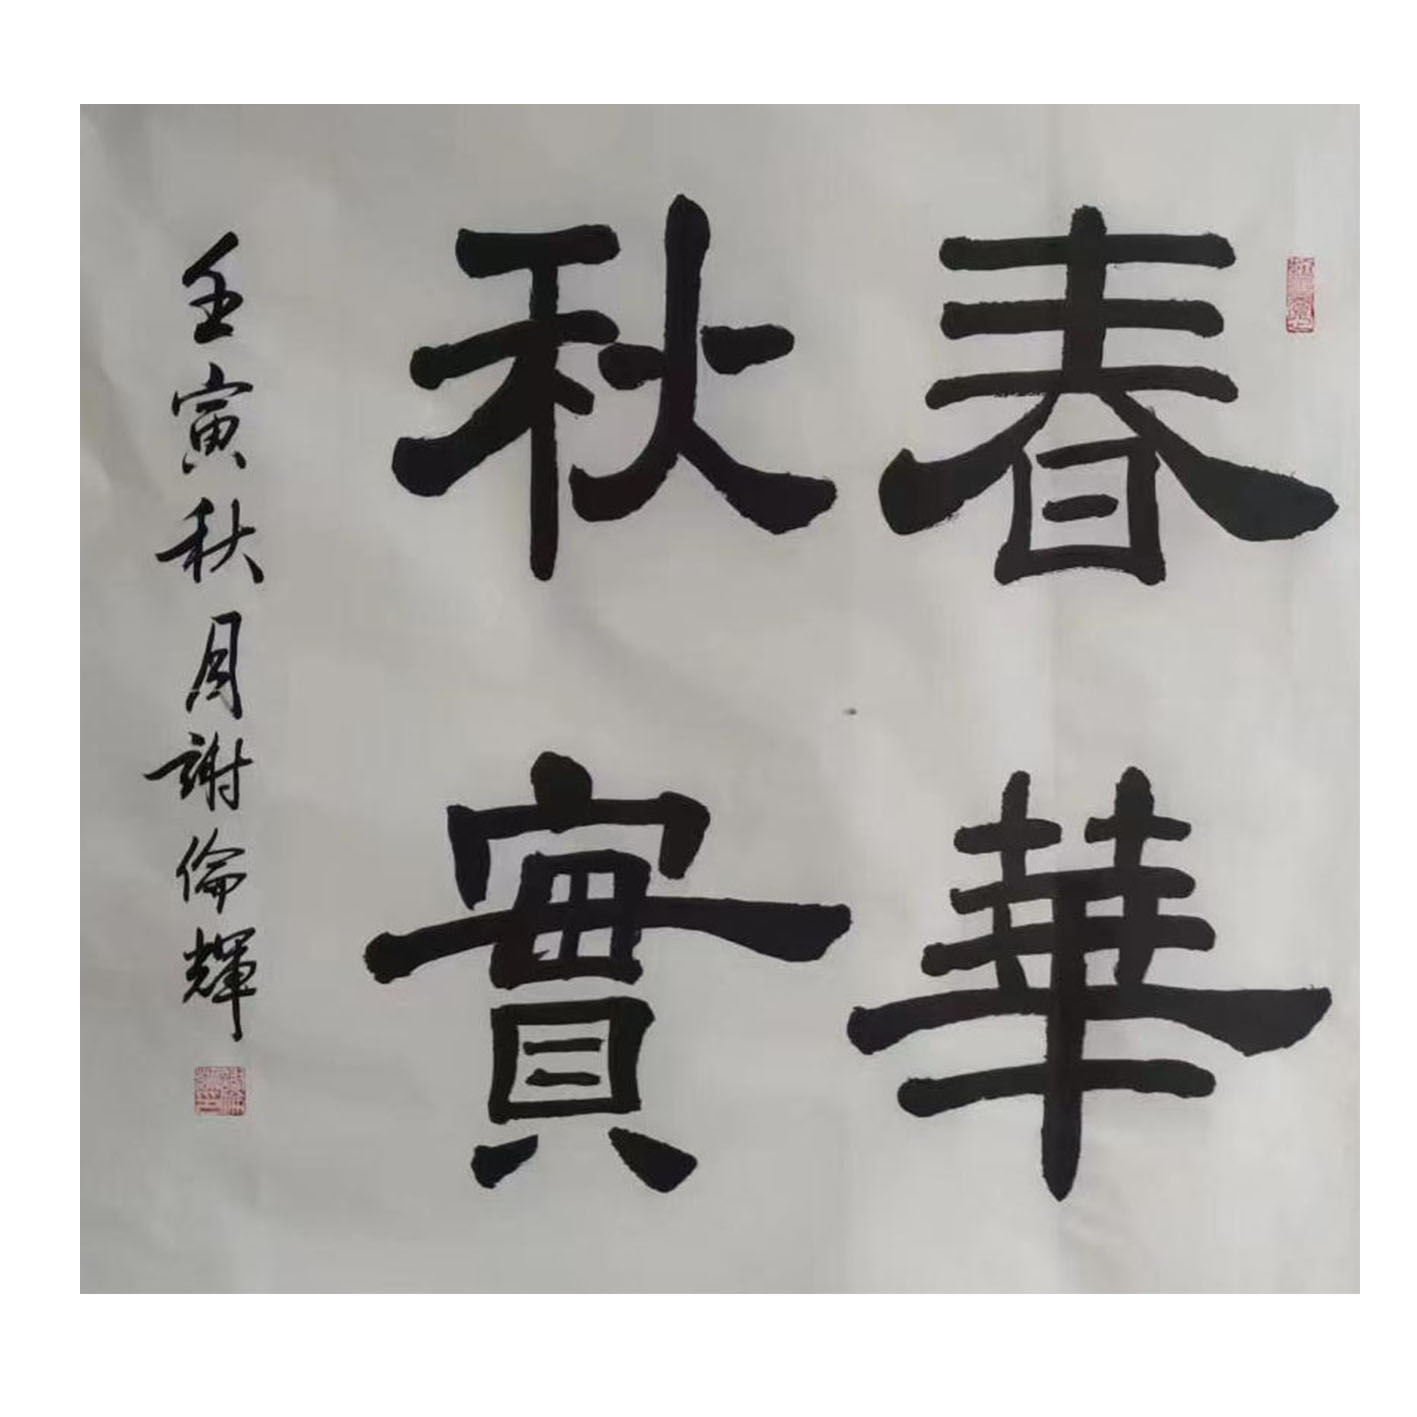 春華
秋實
壬寅秋月謝倫輝